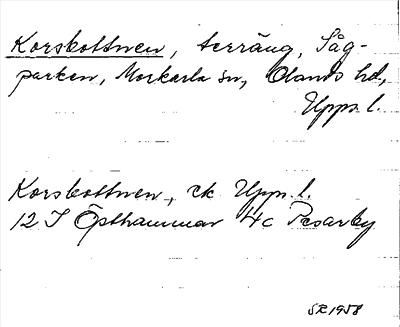 Korskottnen, terräng, Såg-
parken, Morkarla sn, Olands hd,
Upps. l.
Korskottnen, ek Upps. l.
12 I Östhammar 4c Risarby
SR 1958